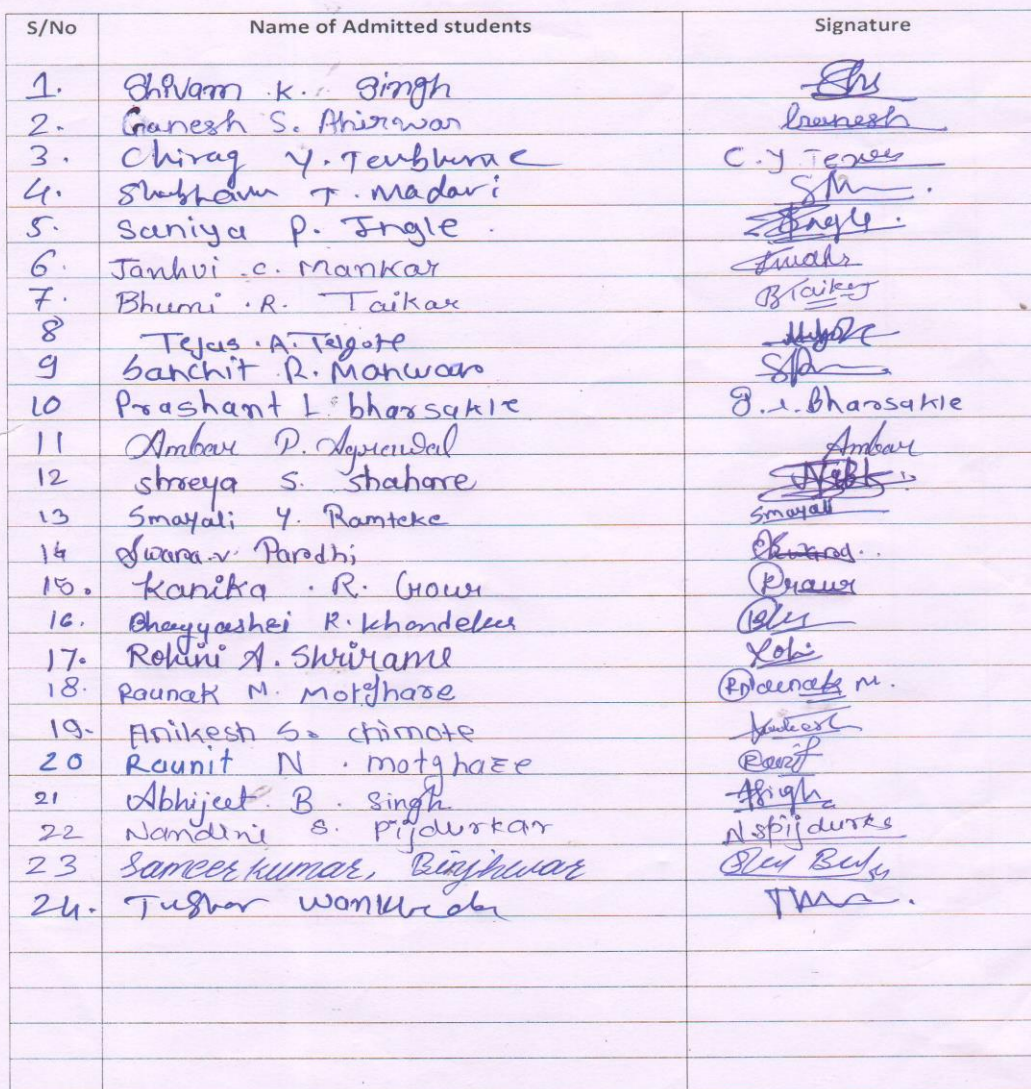 S/No Name of Admitted students Signature
1. Shivam .K. Singh
2. Ganesh S. Ahirwar Ganesh
3. Chirag Y. Tembhurne C.Y
4. Shubham T. Madavi
5. Saniya P. Ingle. Ingle.
6. Janhvi .C. Mankar
7. Bhumi .R. Taikar B Taikar
8 Tejas .A. Telgote
9 Sanchit R. Manwar
10 Prashant L. bharsakle P.L. Bharsakle
11 Ambar P. Agrawal Ambar
12 shreya S. shahare
13 Smayali Y. Ramteke Smayali
14 Swara.v. Pardhi
15. Kanika . R. Gour
16. Bhagyashri R. khandekar
17. Rohini A. Shrirame Rohi
18. Raunak M. Motghare Raunak M.
19. Anikesh S. chimote
20 Raunit N . motghare
21 Abhijeet B . Singh
22 Nandini S. Pijdurkar N S pijdurkr
23 Sameer kumar, Binjhwar
24. Tushar Wankhede